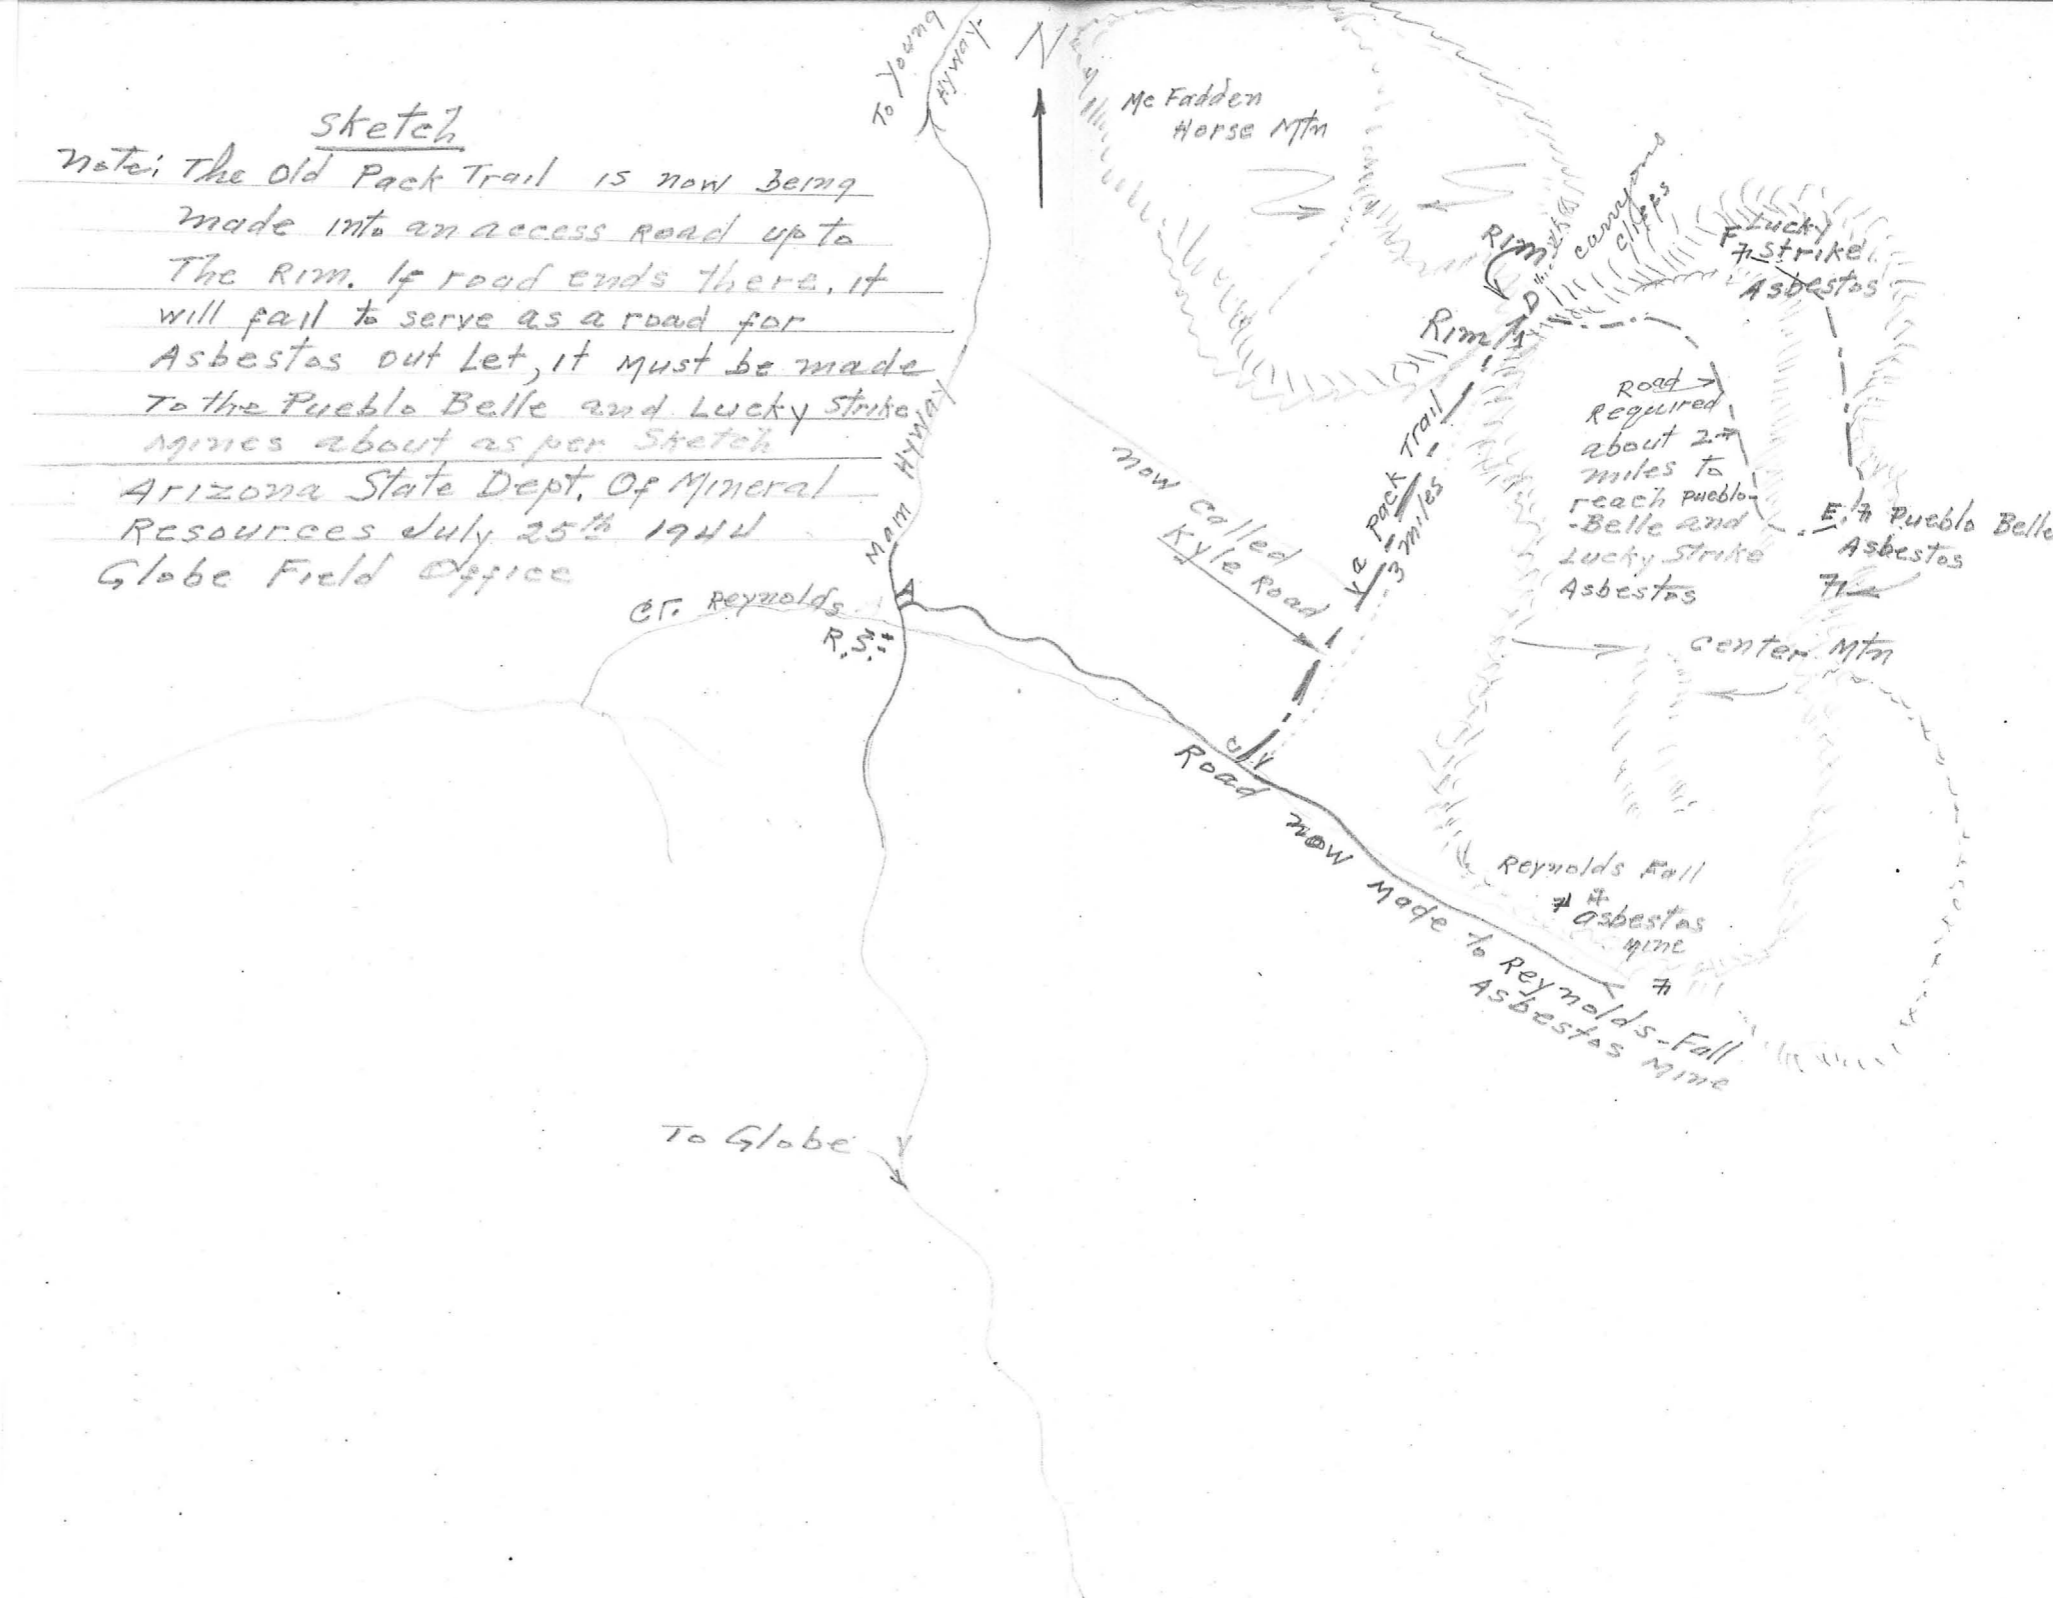 Sketch
Note: The Old Pack Trail is now being
made into an access Road up to
The Rim. If road ends there, it
will fail to serve as a road for
Asbestos out Let, it Must be made
To the Pueblo Belle and Lucky Strike
Mines about as per Sketch
Arizona State Dept. Of Mineral
Resources July 25th 1944
Globe Field Office
To Young
Hyway
N
Mc Fadden
Horse Mtn
Rim
D
Rim
canyons
cliffs
Lucky
F Strike
Asbestos
Main Hyway
Pack Trail
3 miles
Now Called
Kyle Road
Road
Required
about 2
miles to
reach Pueblo-
-Belle and
Lucky Strike
Asbestos
E. Pueblo Belle
Asbestos
Center Mtn
A
Cr. Reynolds
R.S.
C
Road now Made to Reynolds-Fall
Asbestos Mine
Reynolds Fall
asbestos
Mine
To Globe